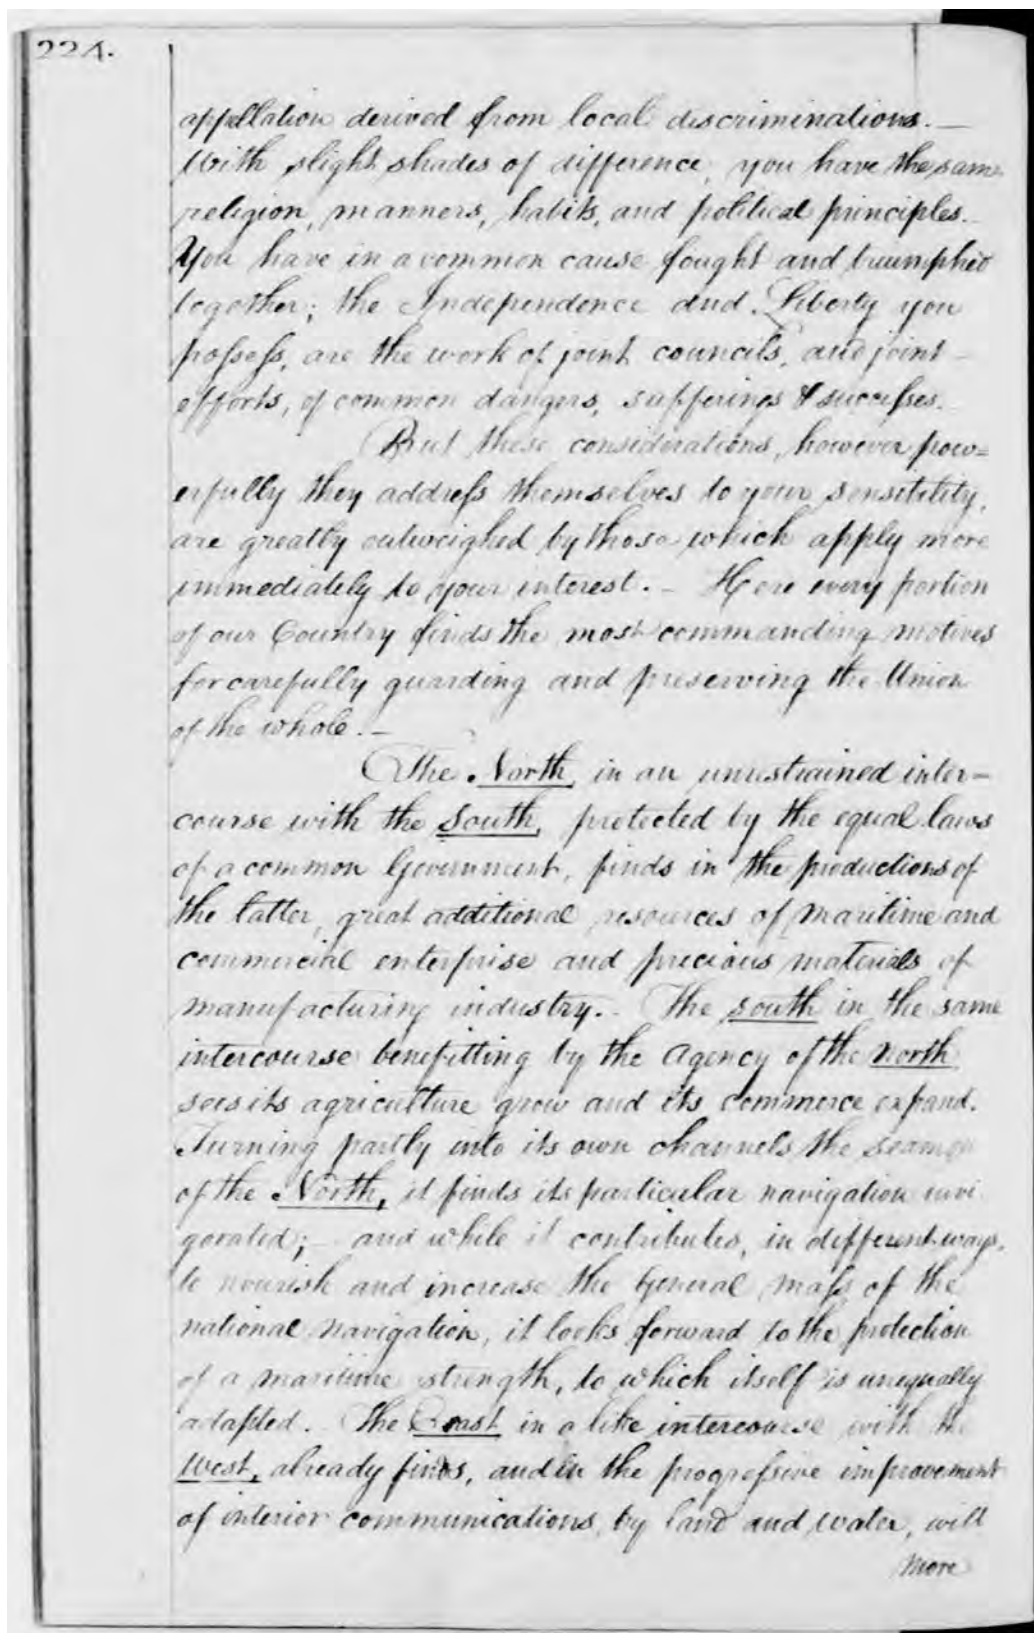 224.
appellation derived from local discriminations. —
With slight shades of difference, you have the same
religion, manners, habits, and political principles.
You have in a common cause fought and triumphed
together; the Independence and Liberty you
possess, are the work of joint councils, and joint
efforts, of common dangers, sufferings & successes.
But these considerations, however pow=
erfully they address themselves to your sensitility,
are greatly outweighed by those which apply more
immediately to your interest. — Here every portion
of our Country finds the most commanding motives
for carefully guarding and preserving the Union
of the whole. —
The North, in an unrestrained inter-
course with the South, protected by the equal laws
of a common Government, finds in the productions of
the latter, great additional resources of maritime and
commercial enterprise and precious materials of
manufacturing industry. The South in the same
intercourse benefitting by the Agency of the North
sees its agriculture grow and its commerce expand.
Turning partly into its own channels the seamen
of the North, it finds its particular navigation invi
gorated; — and while it contributes, in different ways,
to nourish and increase the General mass of the
national navigation, it looks forward to the protection
of a maritime strength, to which itself is unequally
adapted. The East in a like intercourse with the
West, already finds, and in the progressive improvement
of interior communications, by land and water, will
more